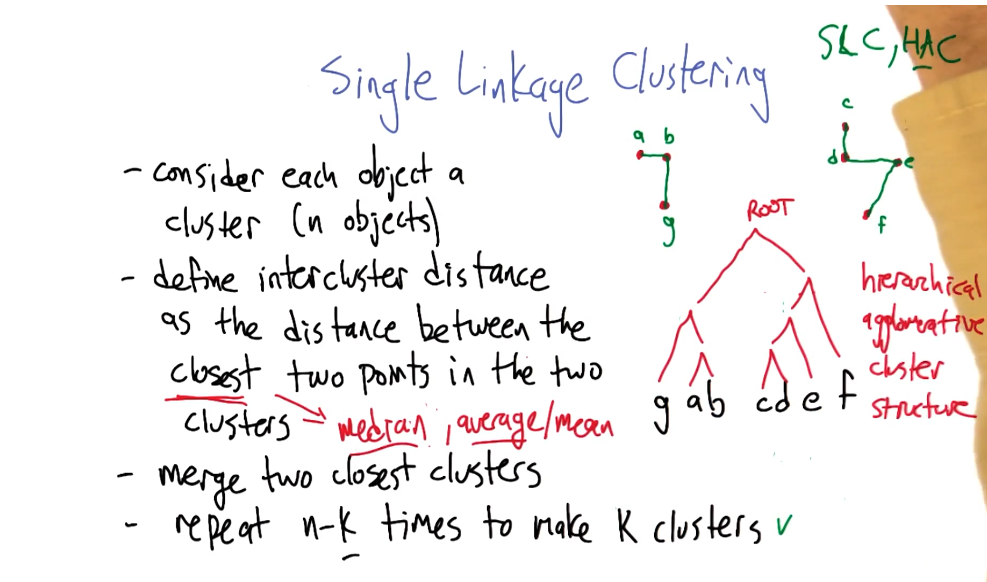 SLC, HAC
Single Linkage Clustering
- consider each object a
cluster (n objects)
- define intercluster distance
as the distance between the
closest two points in the two
clusters - median, average/mean
- merge two closest clusters
- repeat n-k times to make K clusters ✓
a b
g
c
d e
f
ROOT
g ab cd e f
hierarchical
agglomerative
cluster
structure